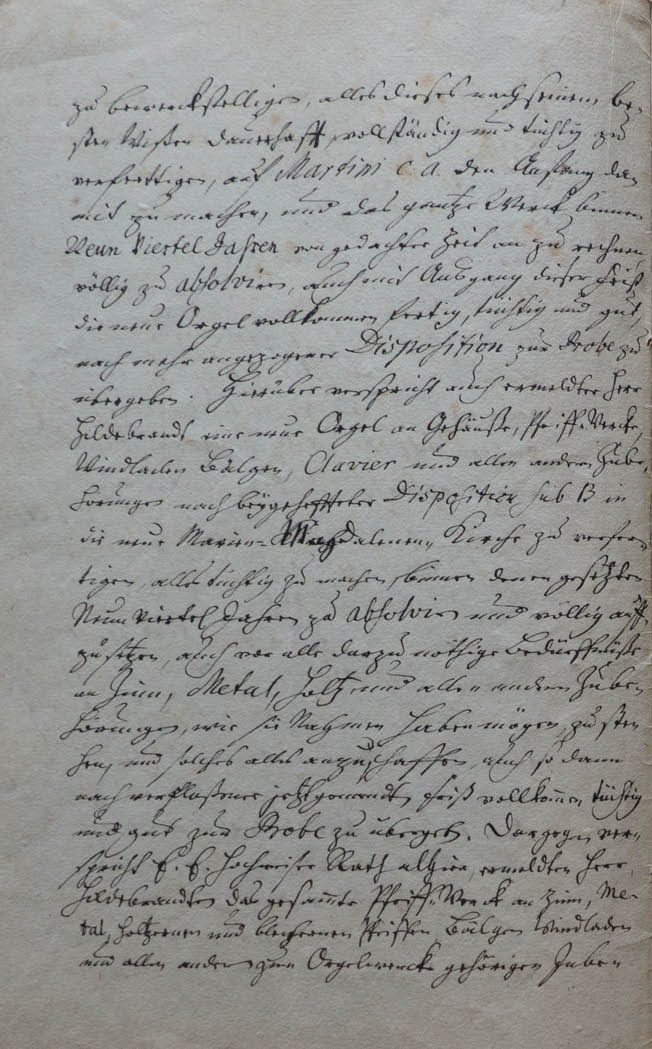 zu bewerckstelligen, alles dieses nach seinem be-
sten Wißen dauerhafft, vollständig und tüchtig zu
verferttigen, auf Martini c. a. den Anfang da
mit zu machen, und das gantze Werck binnen
Neun Viertel Jahren von gedachter Zeit an zu rechnen
völlig zu absolviren, auch mit Ausgang dieser Frist
die neue Orgel vollkommen fertig, tüchtig und gut,
nach mehr angezogener Disposition zur Probe zu
übergeben. Hierüber verspricht auch ermeldter Herr
Hildebrandt eine neue Orgel an Gehäuße, Pfeiff-Wercke,
Windladen Bälgen, Clavier und allen andern Zube-
hörungen nach beygehesteter Disposition sub B in
die neue Marien-Magdalenen-Kirche zu verfer-
tigen, alles tüchtig zu machen, binnen denen gesetzten
Neun Viertel Jahren zu absolviren und völlig auff
zusetzen, auch vor alle darzu nöthige Bedürffnüße
an Zinn, Metal, Holtz und allen andern Zube
hörungen, wie sie Nahmen haben mögen, zu ste
hen, und solches alles anzuschaffen, auch so dann
nach verfloßener jetztgenandten Frist vollkommen tüchtig
und gut zur Probe zu übergeben. Dargegen ver-
spricht E. E. Hochweiser Rath alhier, ermeldten Herr
Hildebrandten das gesammte Pfeiff-Werck an Zinn, Me-
tal, höltzernen und blechernen Pfeiffen, Bälgen Windladen
und allen andern zum Orgelwercke gehörigen Zube